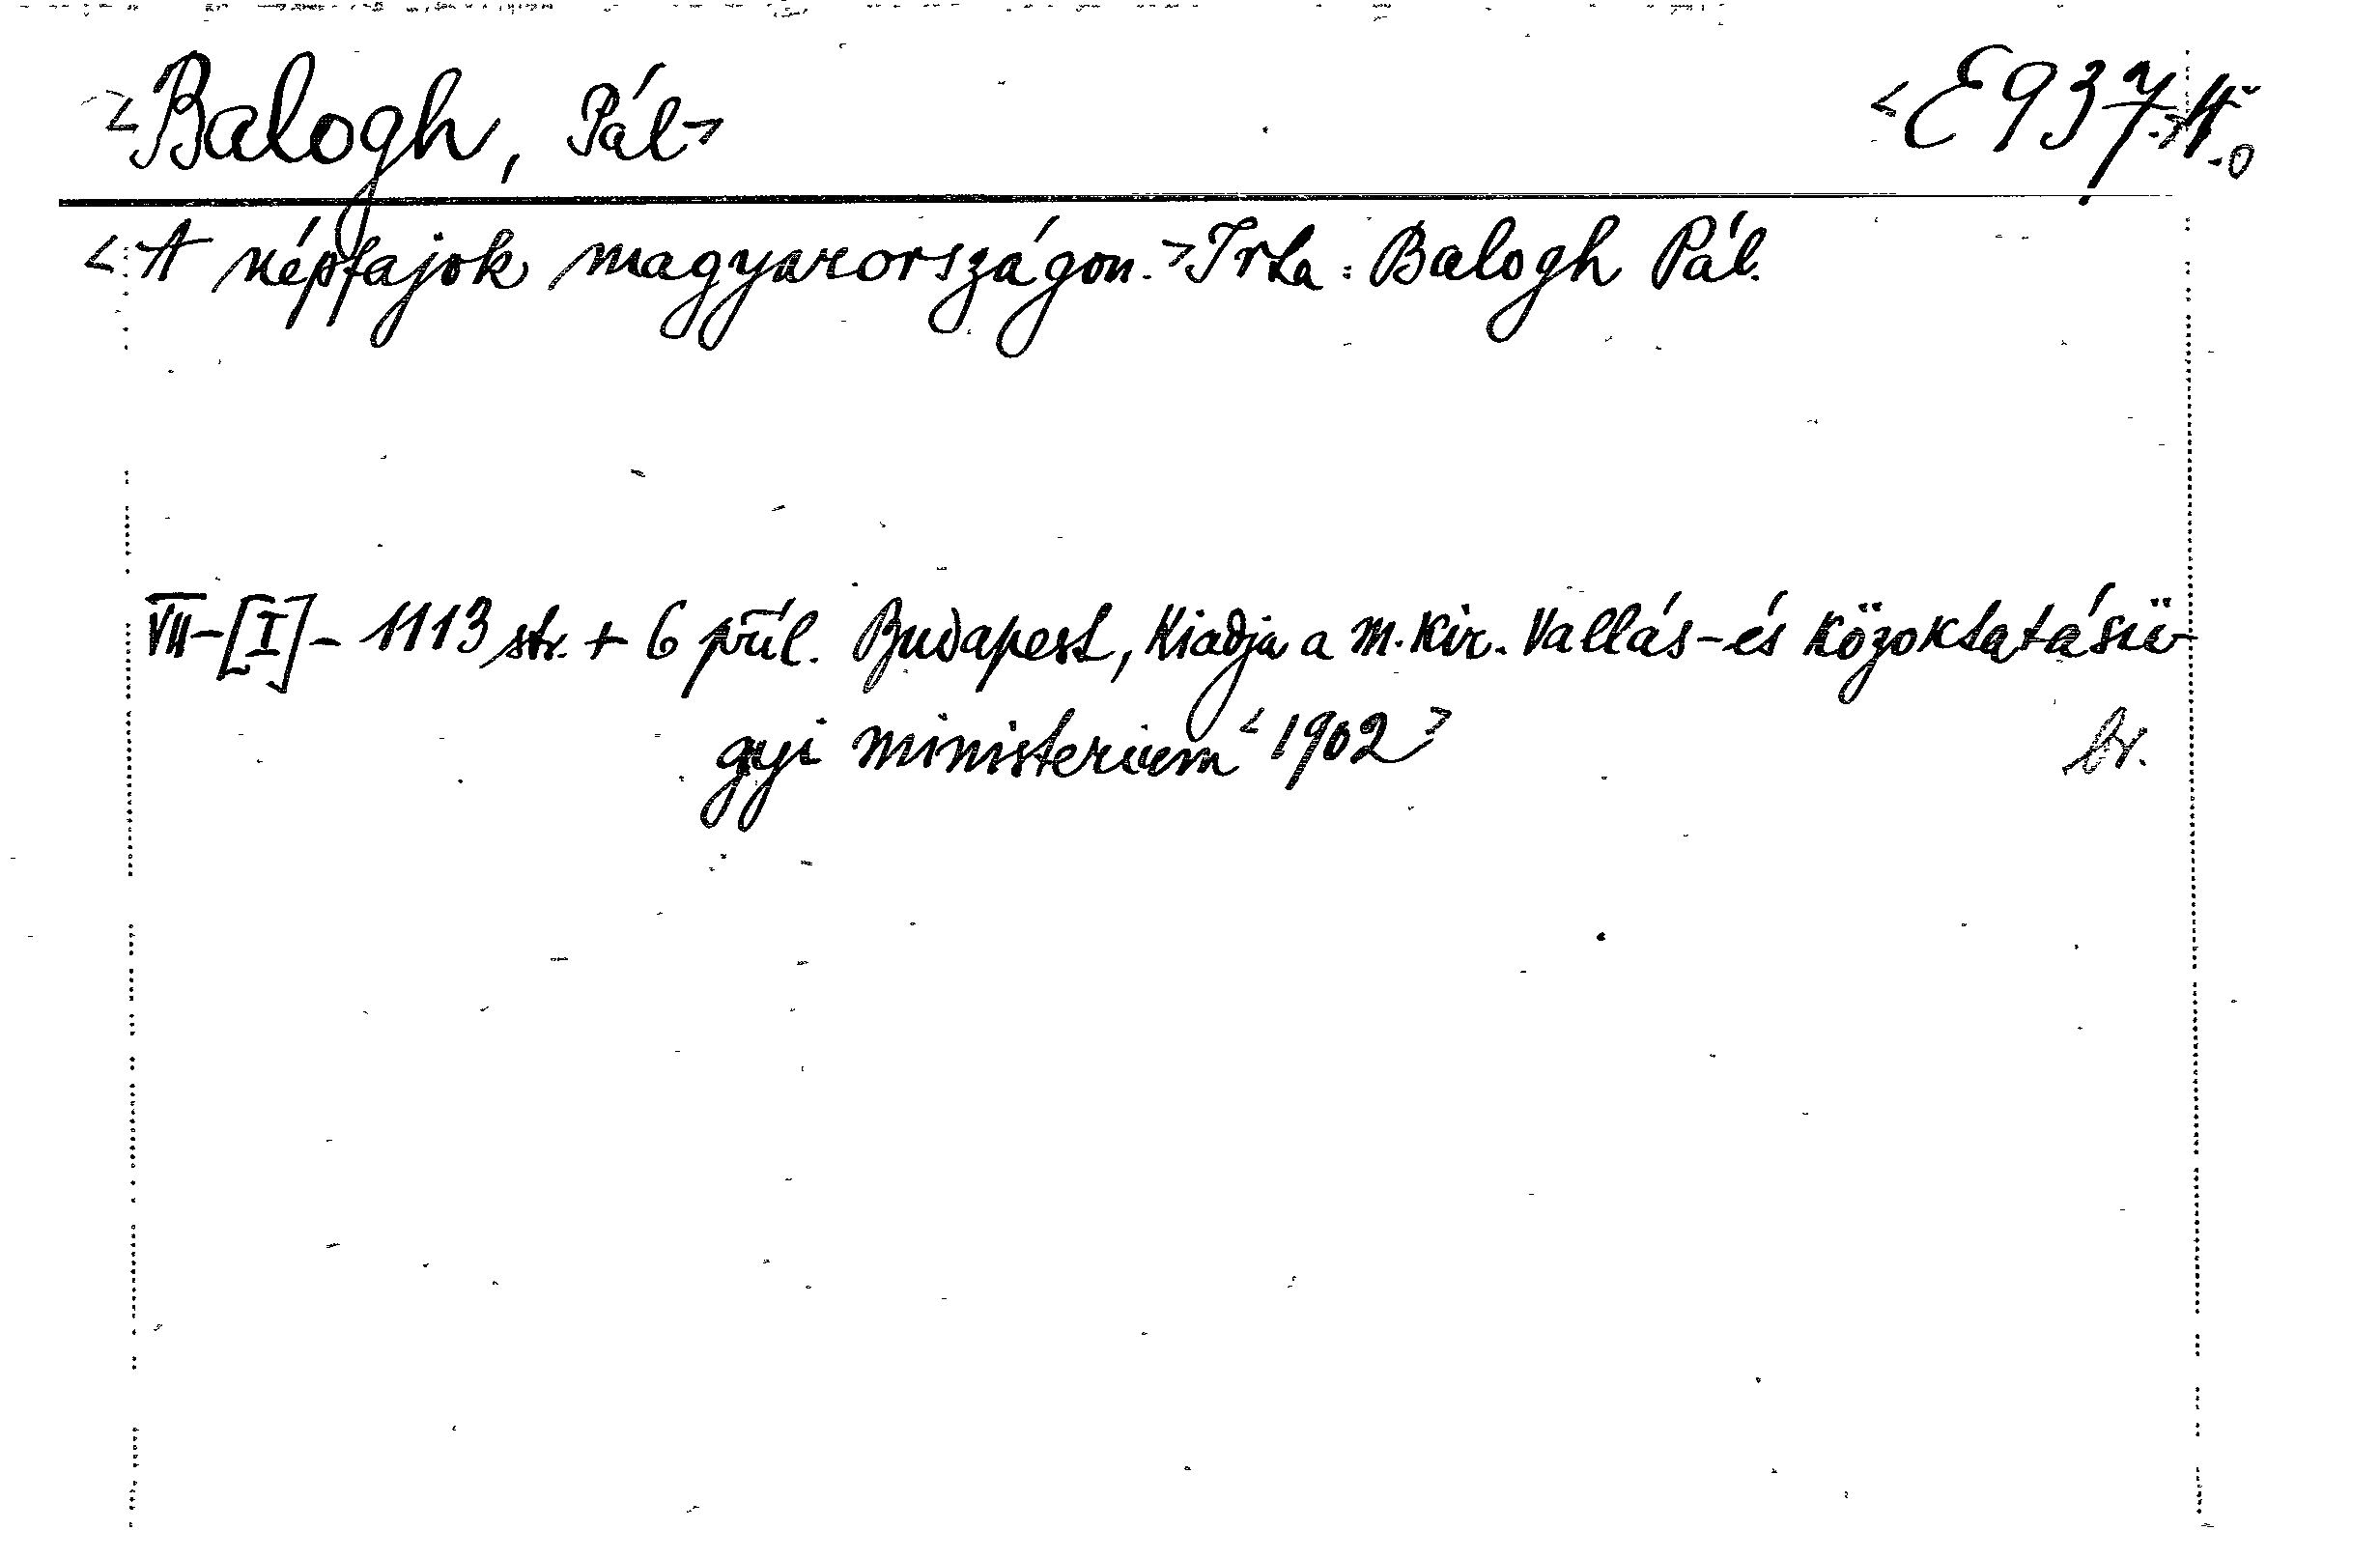 <Balogh, Pál> <E 937.>
<A népfajok magyarországon.> Irta: Balogh Pál.
VII-[I]-1113 str. + 6 příl. Budapest, Kiadja a m. kir. Vallás-és közoktatásü-
gyi ministerium <1902>
br.